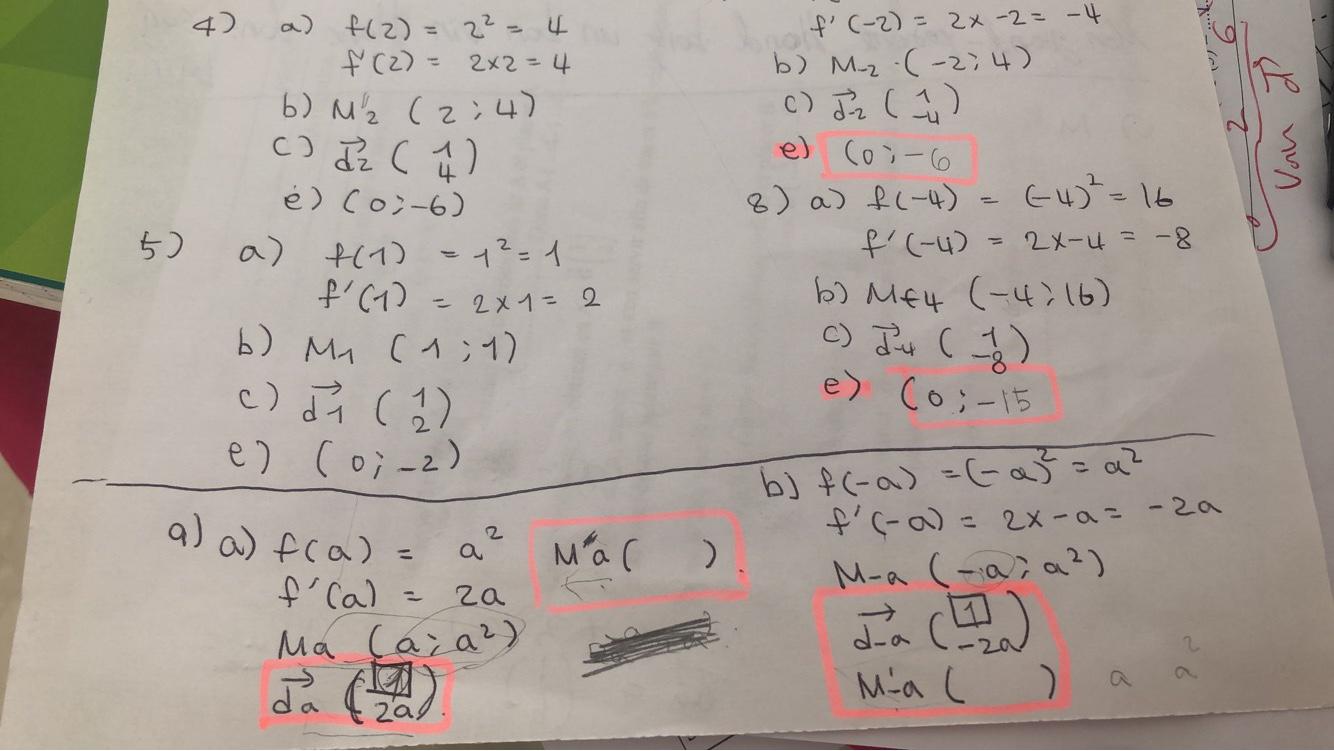 4) a) f(2) = 2² = 4
f'(2) = 2x2 = 4
b) M'2 ( 2 ; 4)
c) d2 ( 1 4 )
e) (0 ; -6)
5) a) f(1) = 1² = 1
f'(1) = 2x1 = 2
b) M1 ( 1 ; 1)
c) d1 ( 1 2 )
e) ( 0 ; -2)
f'(-2) = 2x -2 = -4
b) M-2 (-2 ; 4)
c) d-2 ( 1 -4 )
e) (0 ; -6
8) a) f(-4) = (-4)² = 16
f'(-4) = 2x-4 = -8
b) M-4 (-4 ; 16)
c) d-4 ( 1 -8 )
e) (0 ; -15
9) a) f(a) = a²
f'(a) = 2a
Ma (a ; a²)
da ( 1 2a )
M'a ( )
b) f(-a) = (-a)² = a²
f'(-a) = 2x-a = -2a
M-a (-a ; a²)
d-a ( 1 -2a )
M'-a ( )
a a²